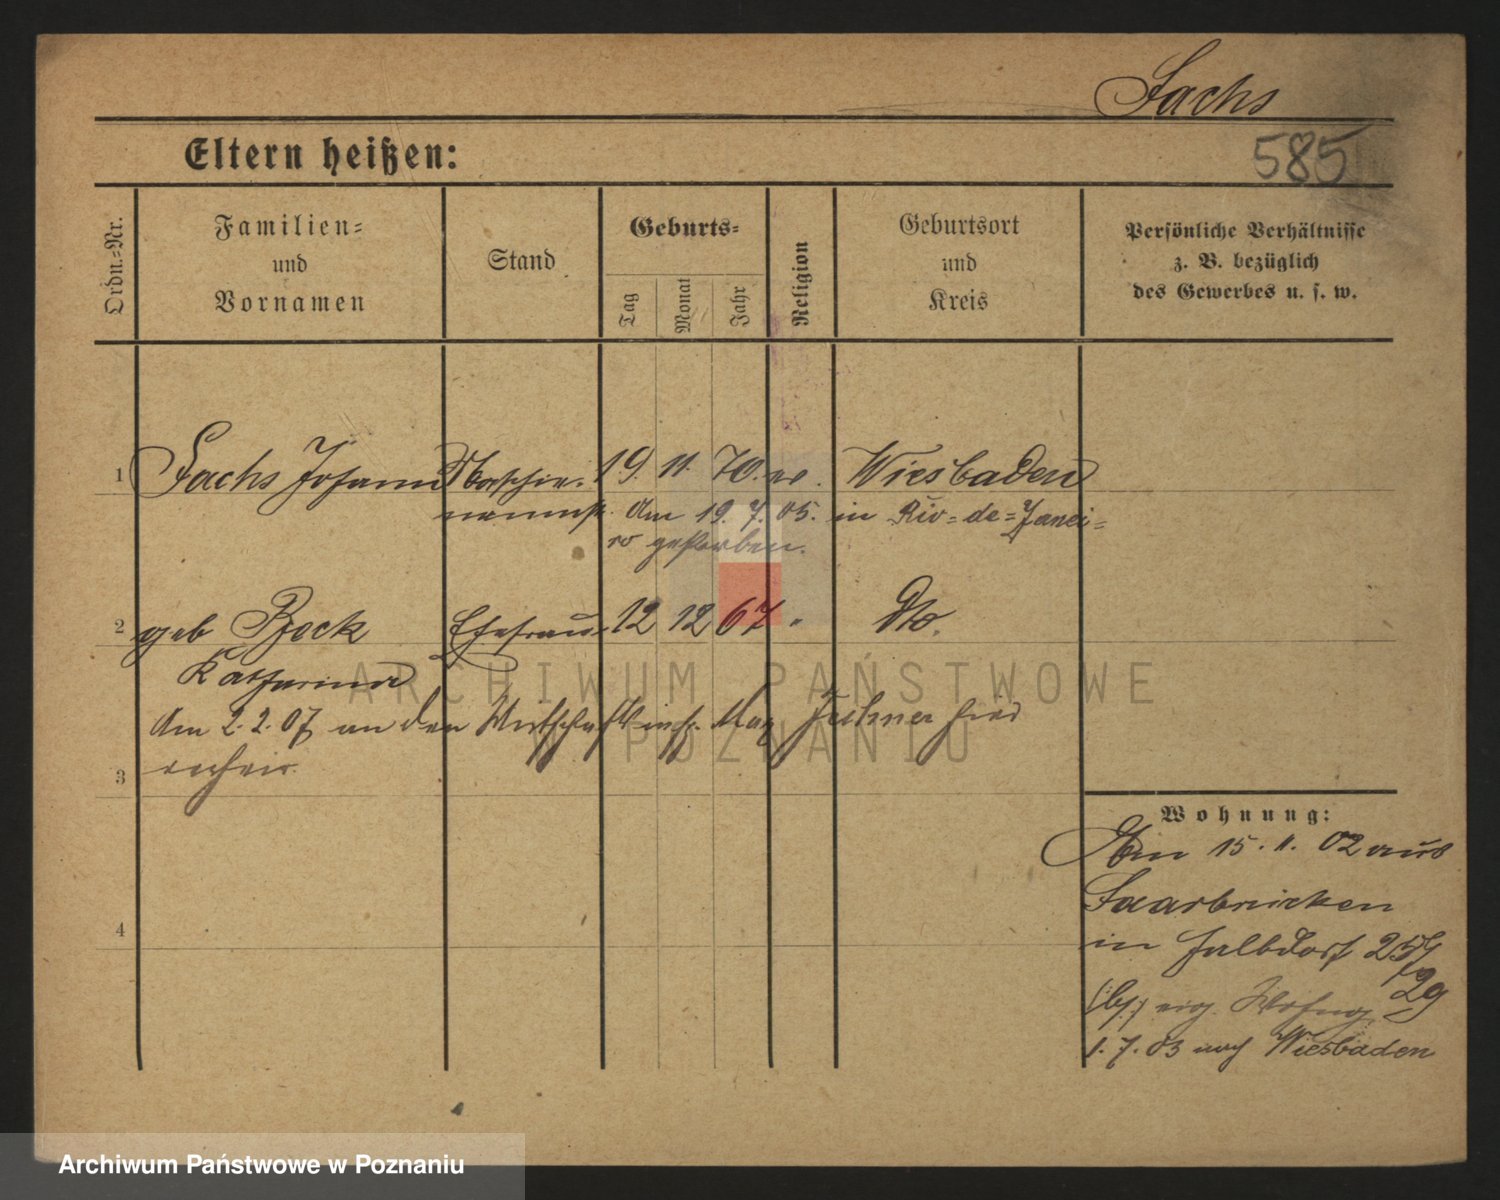 Sachs
585
Eltern heißen:
Ordn.-Nr.
Familien-
und
Vornamen
Stand
Geburts-
Tag
Monat
Jahr
Religion
Geburtsort
und
Kreis
Persönliche Verhältnisse
z. B. bezüglich
des Gewerbes u. s. w.
1 Sachs Johann Maschin. 19. 11. 70. ev. Wiesbaden
Am 19. 7. 05. in Rio-de-Janei-
ro gestorben.
2 geb Bock Ehefrau 12 12 67 " Dto.
Katharina
Am 2. 2. 07 an den Max hier
3
4
Wohnung:
Am 15. 11. 02 aus
Saarbrücken
in 257/29
(bz:) eig. Wohng.
1. 7. 03 nach Wiesbaden
ARCHIWUM PAŃSTWOWE
W POZNANIU
Archiwum Państwowe w Poznaniu